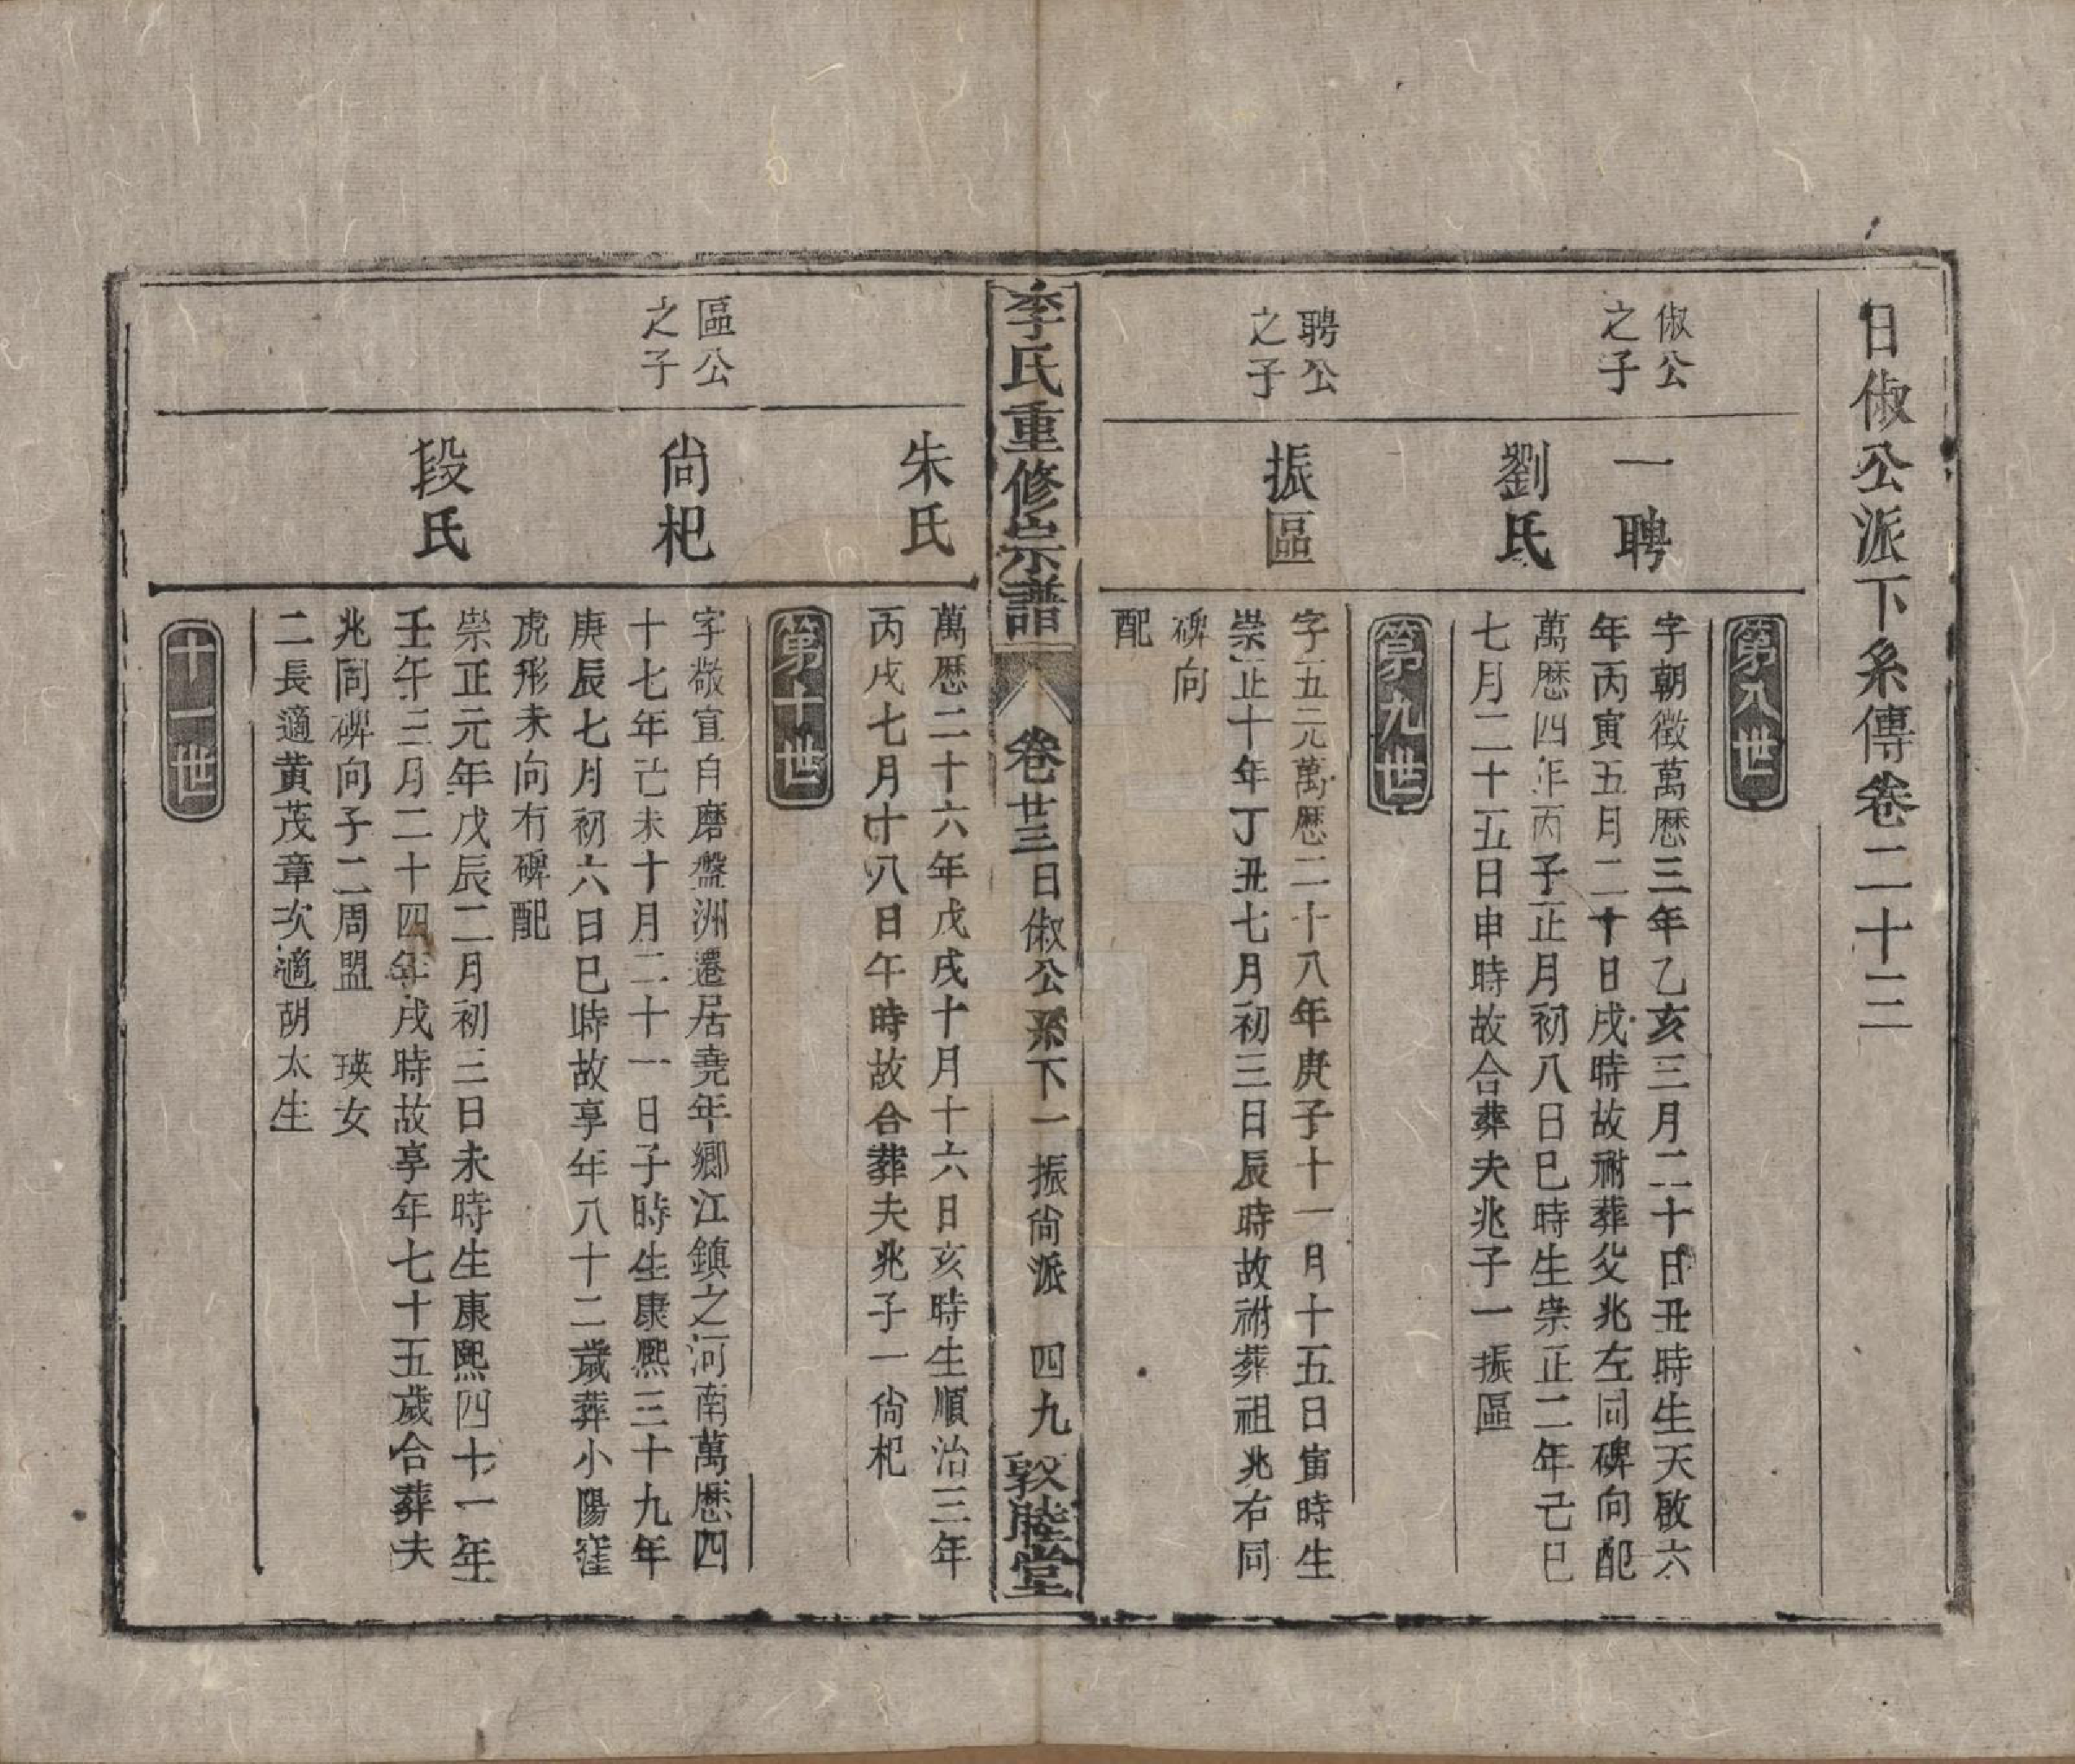 日俶公派下系傳卷二十三
第八世
俶公
之子
一聘
字朝徵萬歷三年乙亥三月二十日丑時生天啟六
年丙寅五月二十日戌時故祔葬父兆左同碑向配
劉氏
萬歷四年丙子正月初八日巳時生崇正二年己巳
七月二十五日申時故合葬夫兆子一振區
第九世
聘公
之子
振區
字五元萬歷二十八年庚子十一月十五日寅時生
崇正十年丁丑七月初三日辰時故祔葬祖兆右同
碑向
配
李氏重修宗譜
卷廿三日俶公系下一振尙派 四九
敦睦堂
朱氏
萬歷二十六年戊戌十月十六日亥時生順治三年
丙戌七月十八日午時故合葬夫兆子一尙杞
第十世
區公
之子
尙杞
字敬宜自磨盤洲遷居堯年鄉江鎮之河南萬歷四
十七年己未十月二十一日子時生康熙三十九年
庚辰七月初六日巳時故享年八十二歲葬小陽窪
虎形未向有碑配
段氏
崇正元年戊辰二月初三日未時生康熙四十一年
壬午三月二十四年戌時故享年七十五歲合葬夫
兆同碑向子二周盟 瑛女
二長適黃茂章次適胡太生
十一世